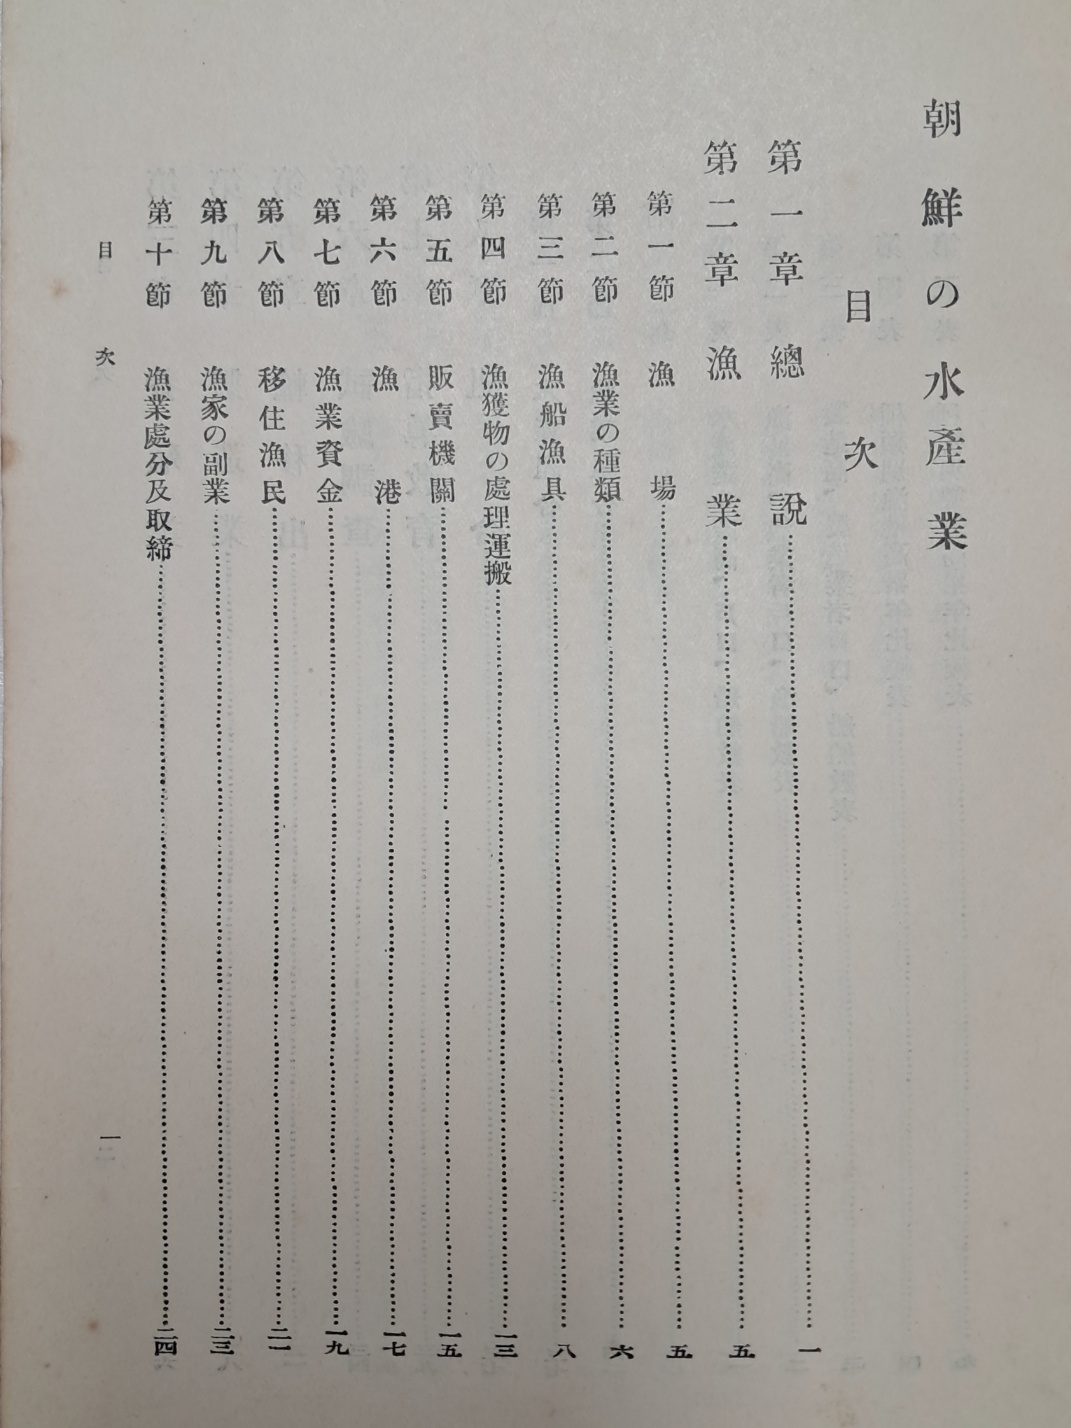 朝鮮の水產業
目次
第一章 總說……一
第二章 漁業……五
第一節 漁場……五
第二節 漁業の種類……六
第三節 漁船漁具……八
第四節 漁獲物の處理運搬……一三
第五節 販賣機關……一五
第六節 漁港……一七
第七節 漁業資金……一九
第八節 移住漁民……二一
第九節 漁家の副業……二三
第十節 漁業處分及取締……二四
目次 一